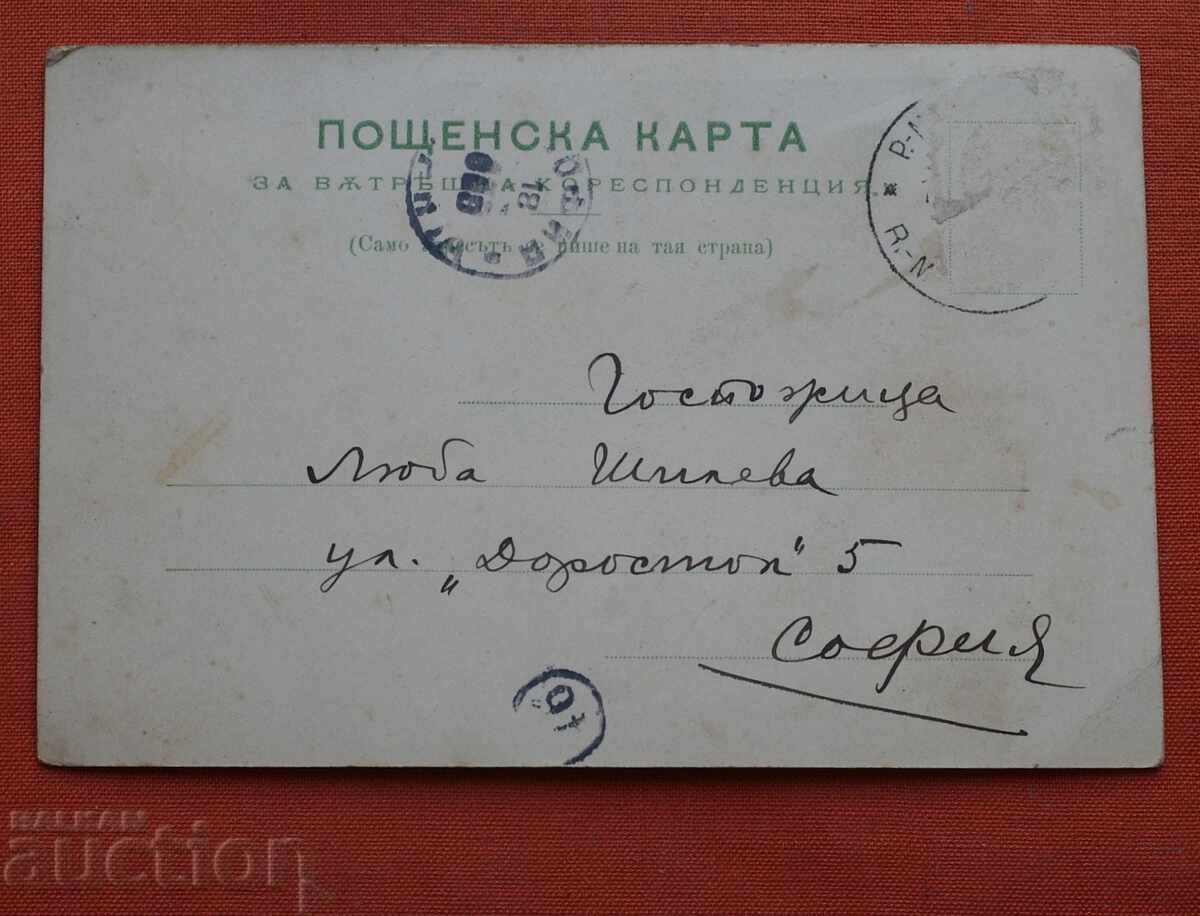 ПОЩЕНСКА КАРТА
ЗА ВѪТРѢШНА КОРЕСПОНДЕНЦИЯ.
(Само адресътъ се пише на тая страна)
18
ФЕВ
Р.-
R.-N
Госпожица
Люба Шилева
ул. „Доростол" 5
София
BALKAN
auction